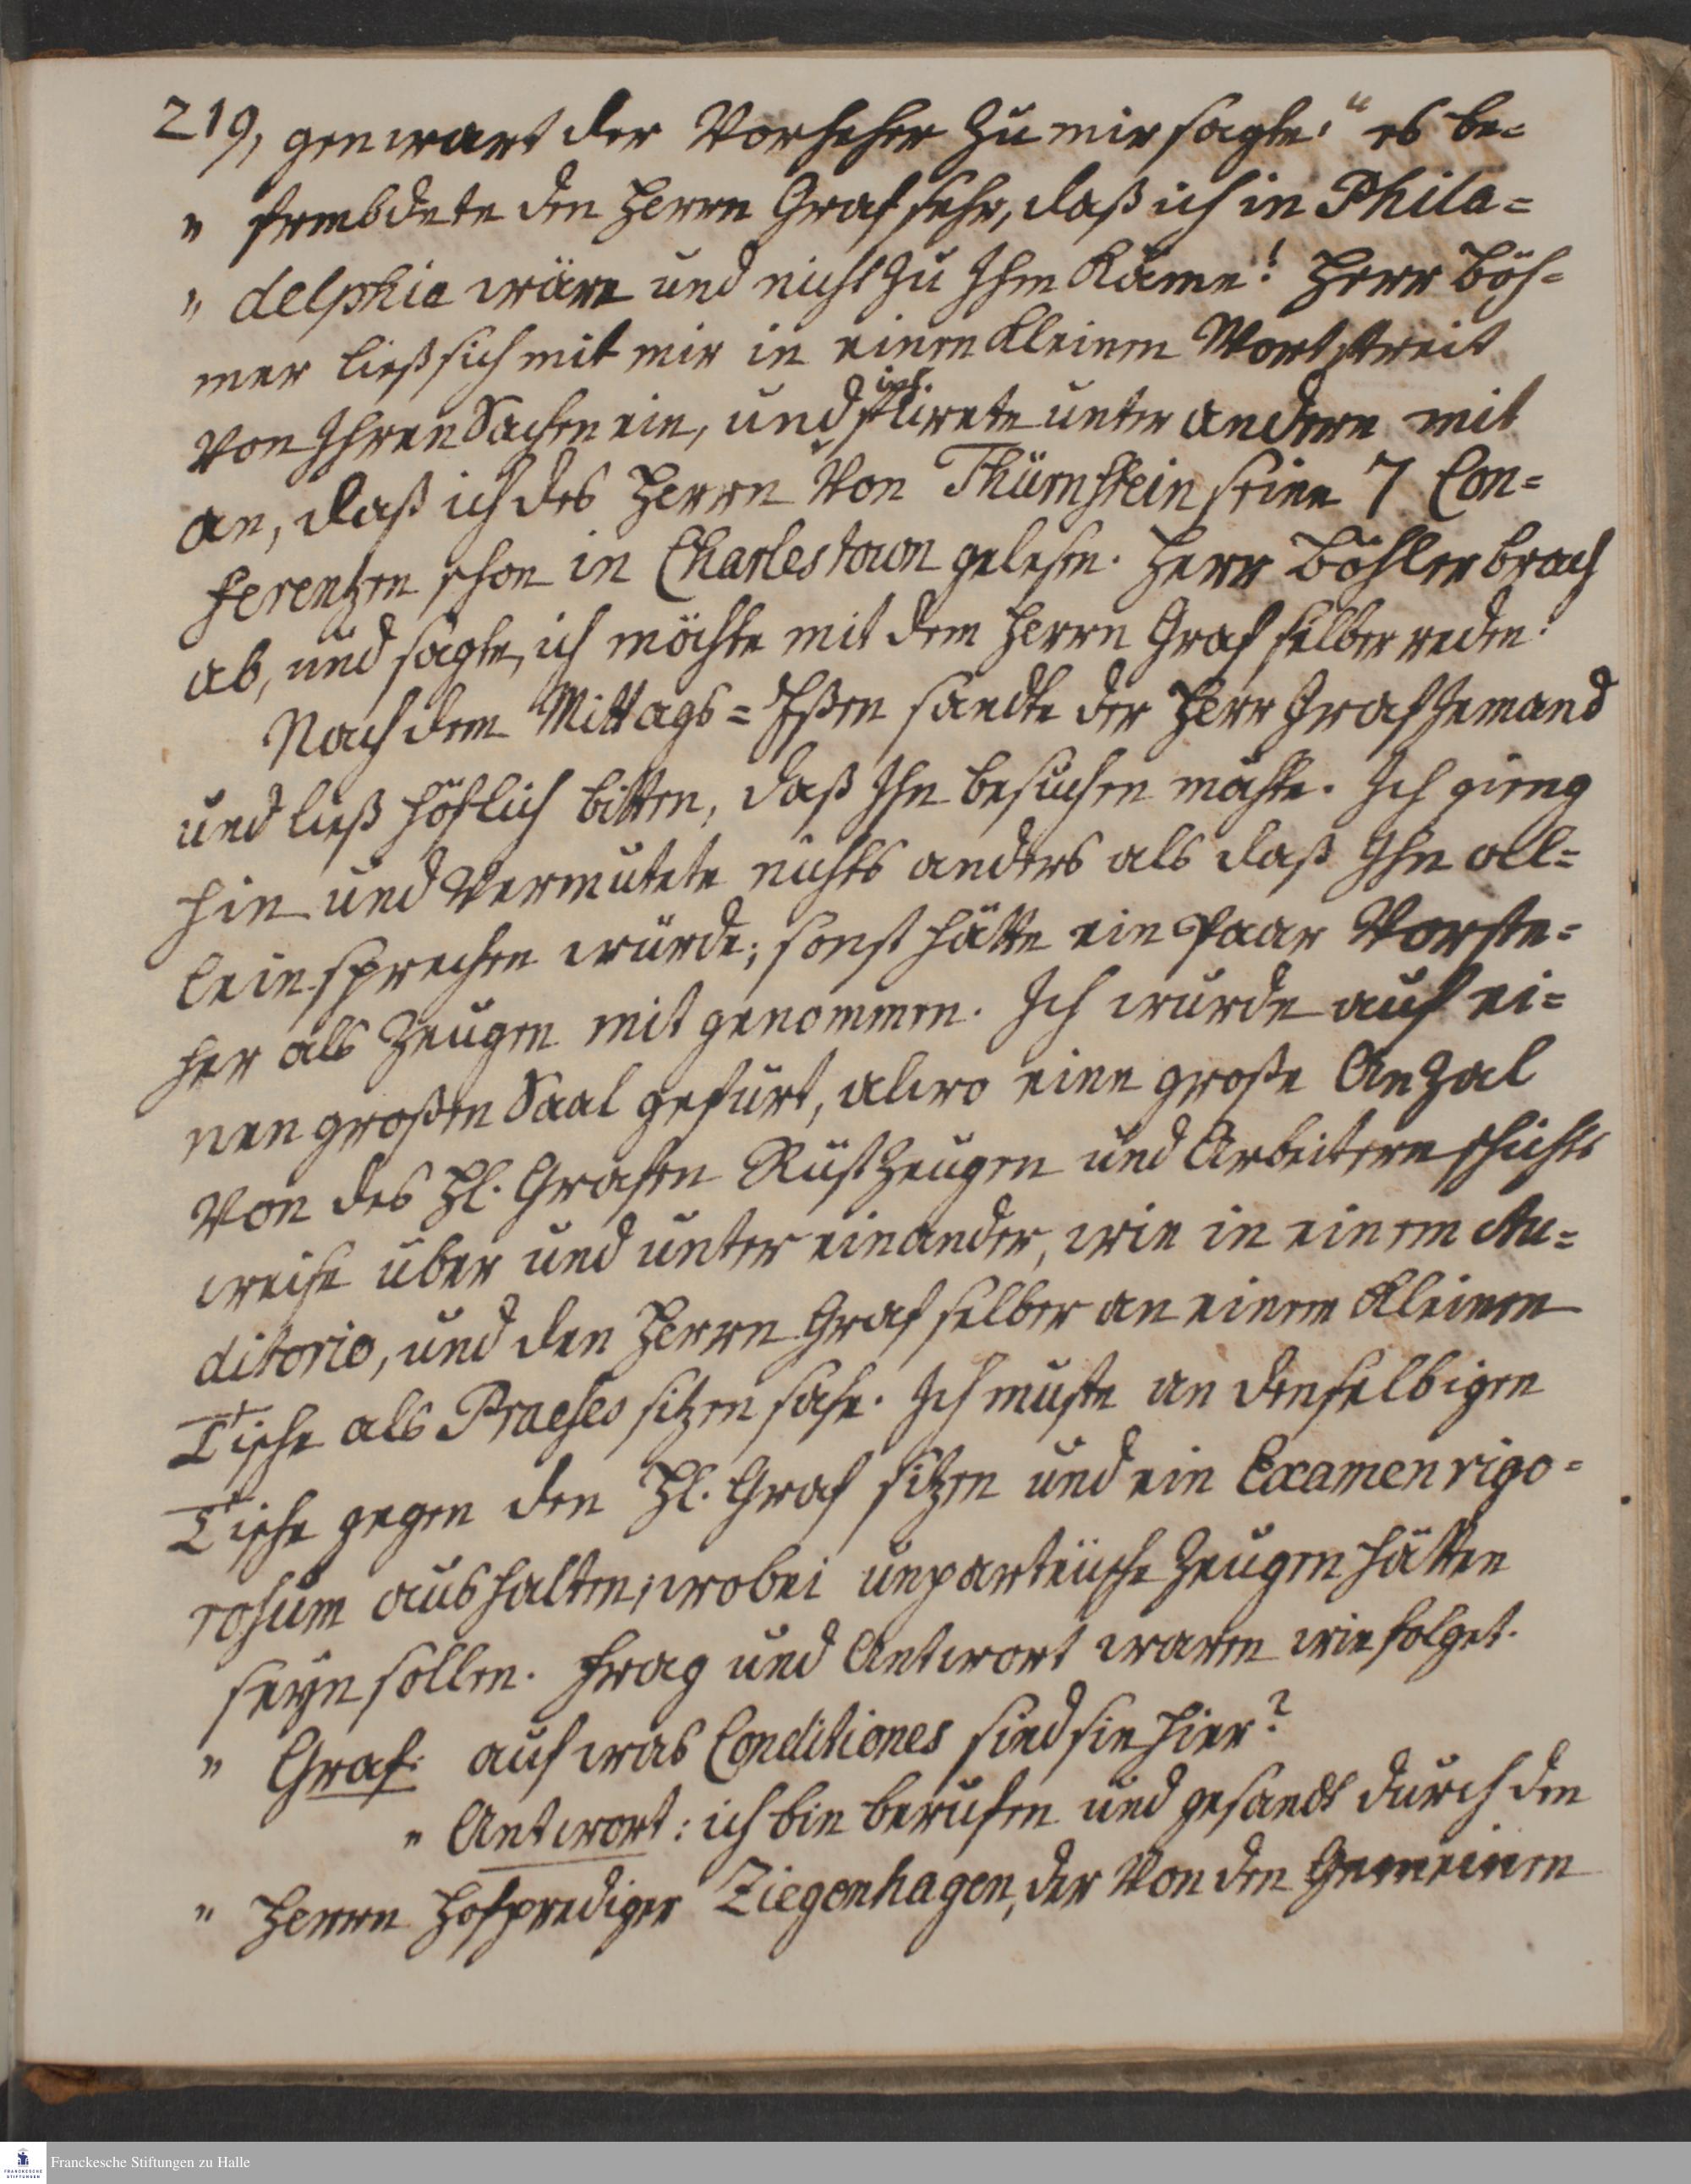 219, genwart der Vorsteher zu mir sagte: "es be=
" frembdete den Herrn Graf sehr, daß ich in Phila=
" delphia wäre und nicht zu Ihm käme! Herr Böh=
mer ließ sich mit mir in einen kleinen Wortstreit
von Ihren Sachen ein, und fürete unter andern mit
an, daß ich des Herrn von Thürnstein seine 7 Con=
ferentzen schon in Charlestown gelesen. Herr Böhler brach
ab, und sagte, ich möchte mit dem Herrn Graf selber reden!
Nach dem Mittags=Eßen sandte der Herr Graf Jemand
und ließ höflich bitten, daß Ihn besuchen möchte. Ich gieng
hin und vermutete nichts anders als daß Ihn all=
lein sprechen würde; sonst hätte ein paar Vorste=
her als Zeugen mit genommen. Ich wurde auf ei=
nen großen Saal gefürt, alwo eine große Anzal
von des H. Grafen Rüstzeugen und Arbeitern schichts
weise über und unter einander, wie in einem Au=
ditorio, und den Herrn Graf selber an einem kleinen
Tische als Praeses sitzen sahe. Ich muste an denselbigen
Tische gegen den H. Graf sitzen und ein Examen rigo=
rosum aushalten, wobei unparteiische Zeugen hätten
seyn sollen. Frag und Antwort waren wie folget.
" Graf: auf was Conditiones sind sie hier?
" Antwort: ich bin berufen und gesandt durch den
" Herrn Hofprediger Ziegenhagen, der von den Gemeinen
Franckesche Stiftungen zu Halle
FRANCKESCHE
STIFTUNGEN